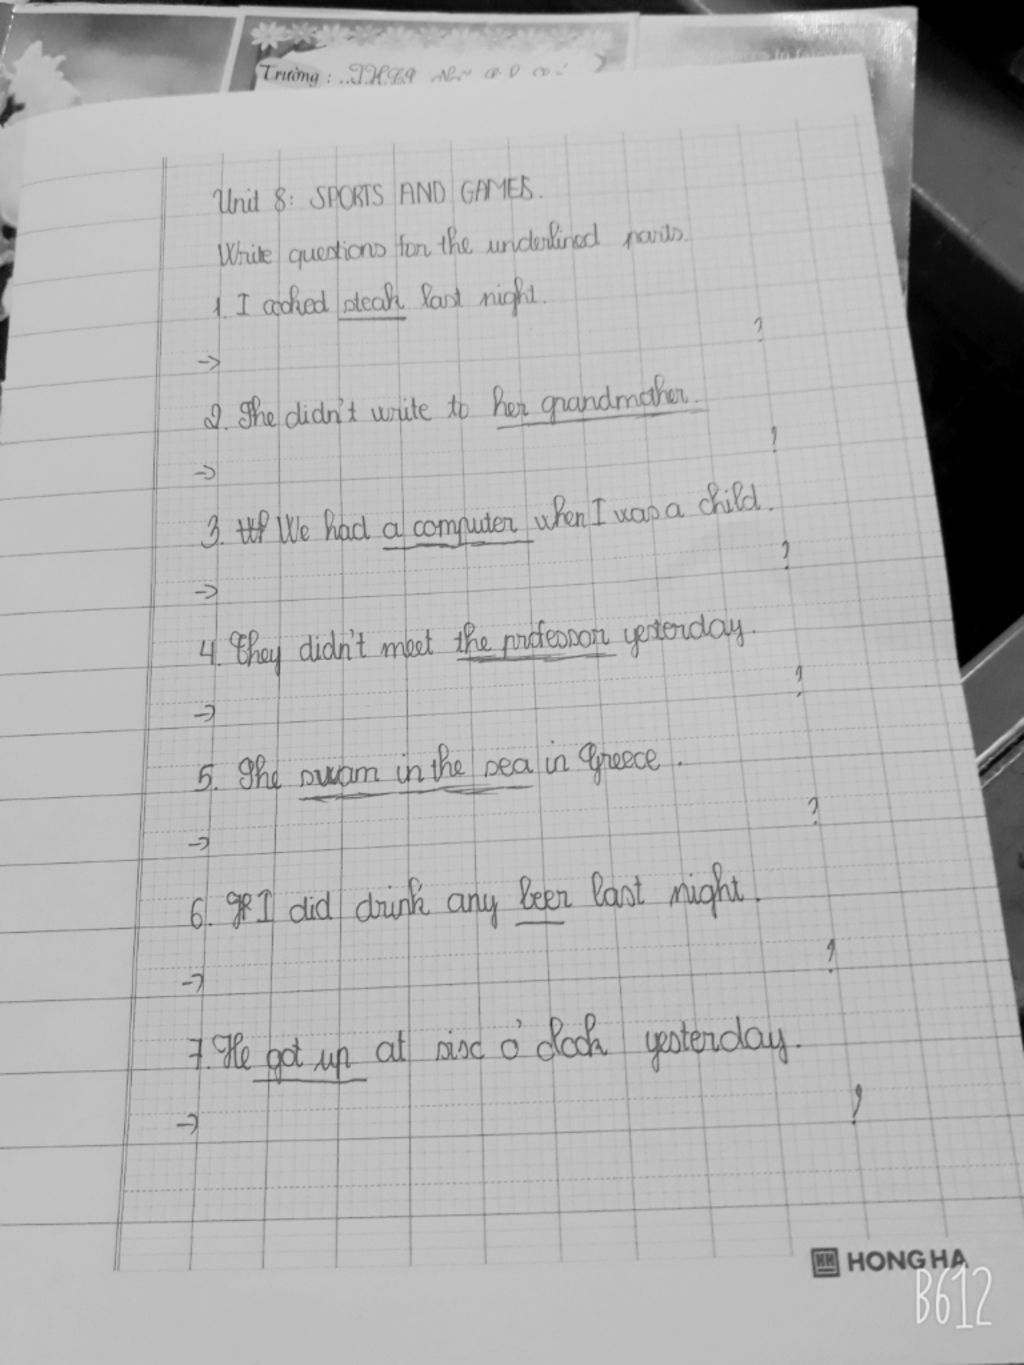 Trường : ..THCS
Unit 8: SPORTS AND GAMES.
Write questions for the underlined parts.
1. I cooked steak last night.
?
->
2. She didn't write to her grandmother.
?
->
3. We had a computer when I was a child.
?
->
4. They didn't meet the professor yesterday.
?
->
5. She swam in the sea in Greece.
?
->
6. I did drink any beer last night.
?
->
7. He got up at six o'clock yesterday.
?
->
HH HONG HA
B612